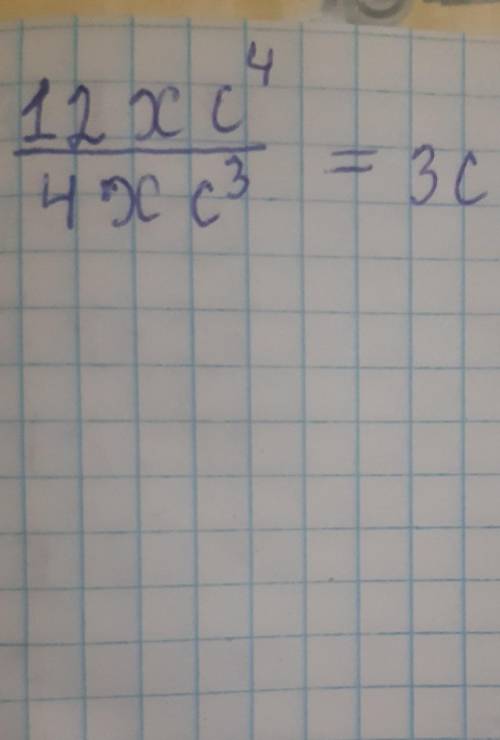 12xc⁴
4xc³ = 3c